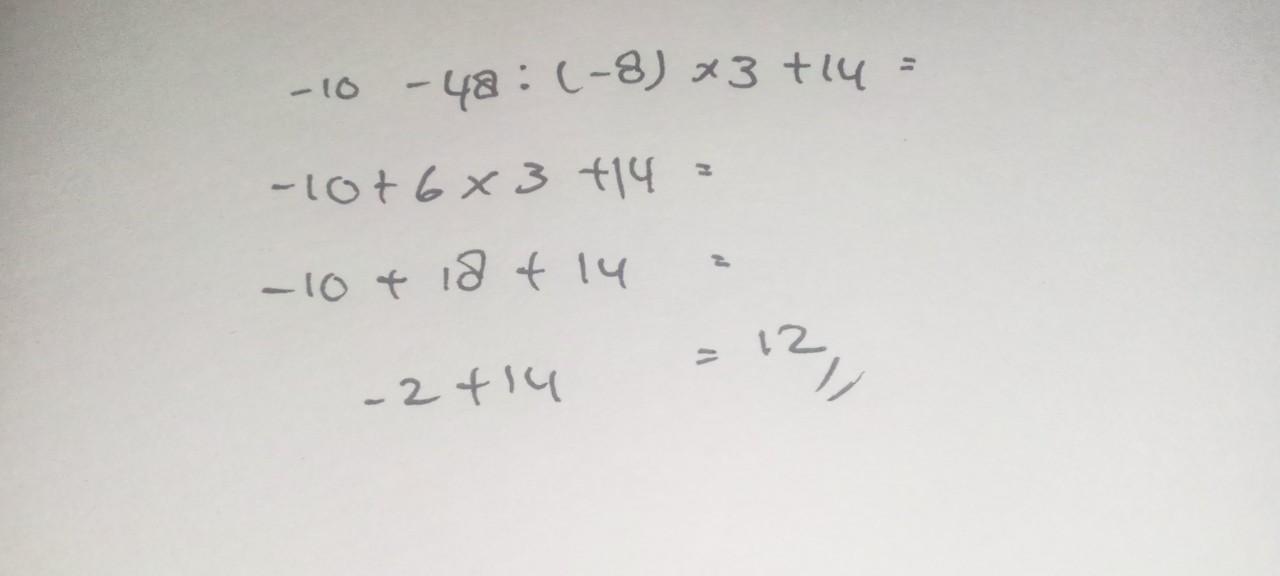 -10 -48 : (-8) × 3 + 14 =
-10 + 6 × 3 + 14 =
-10 + 18 + 14 =
-2 + 14 = 12 //